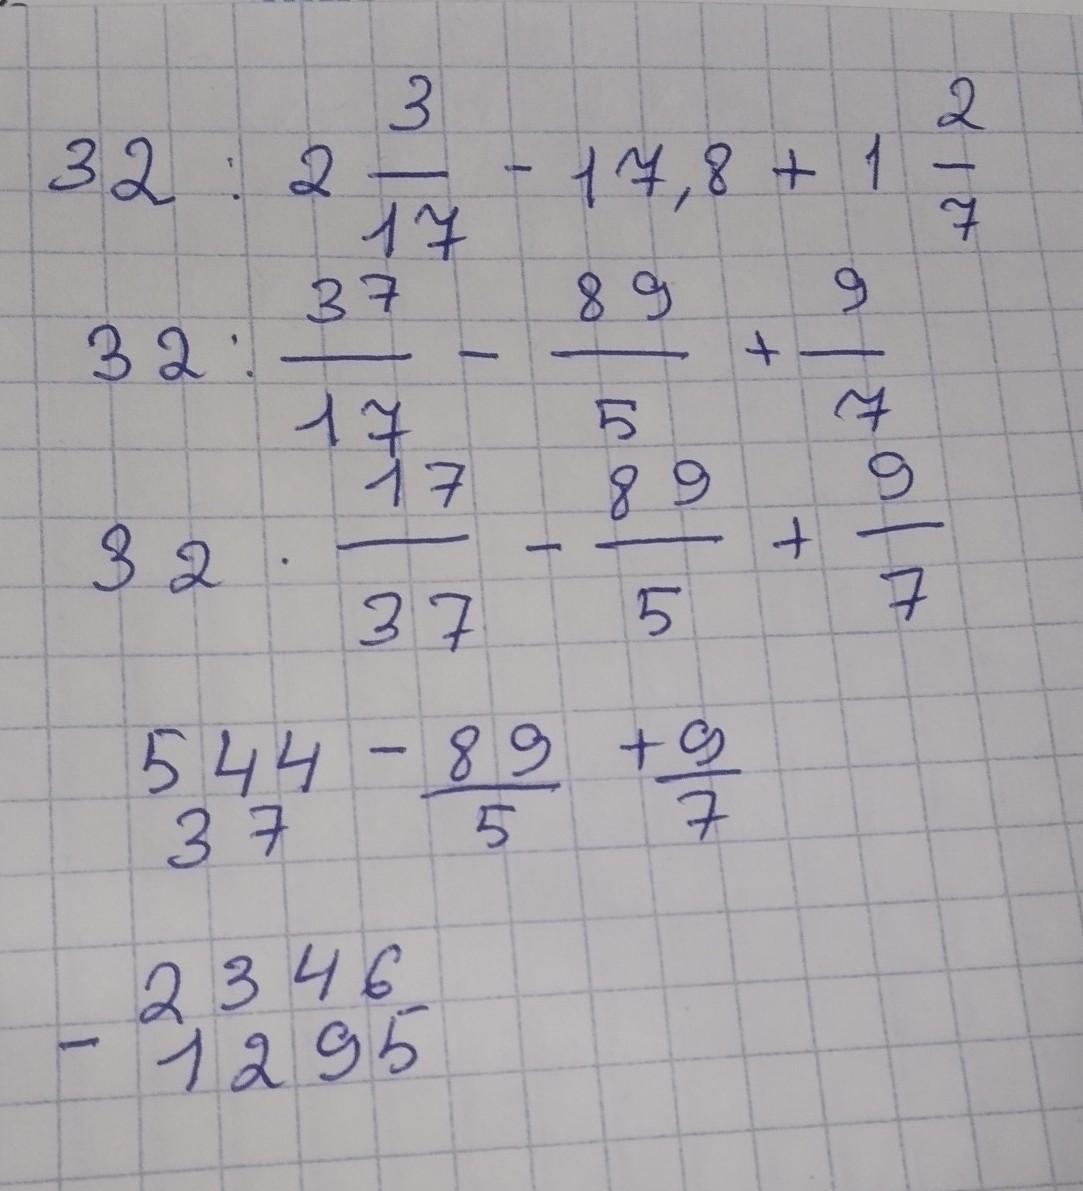 32 : 2 3/17 - 17,8 + 1 2/7
32 : 37/17 - 89/5 + 9/7
32 · 17/37 - 89/5 + 9/7
544/37 - 89/5 + 9/7
- 2346/1295